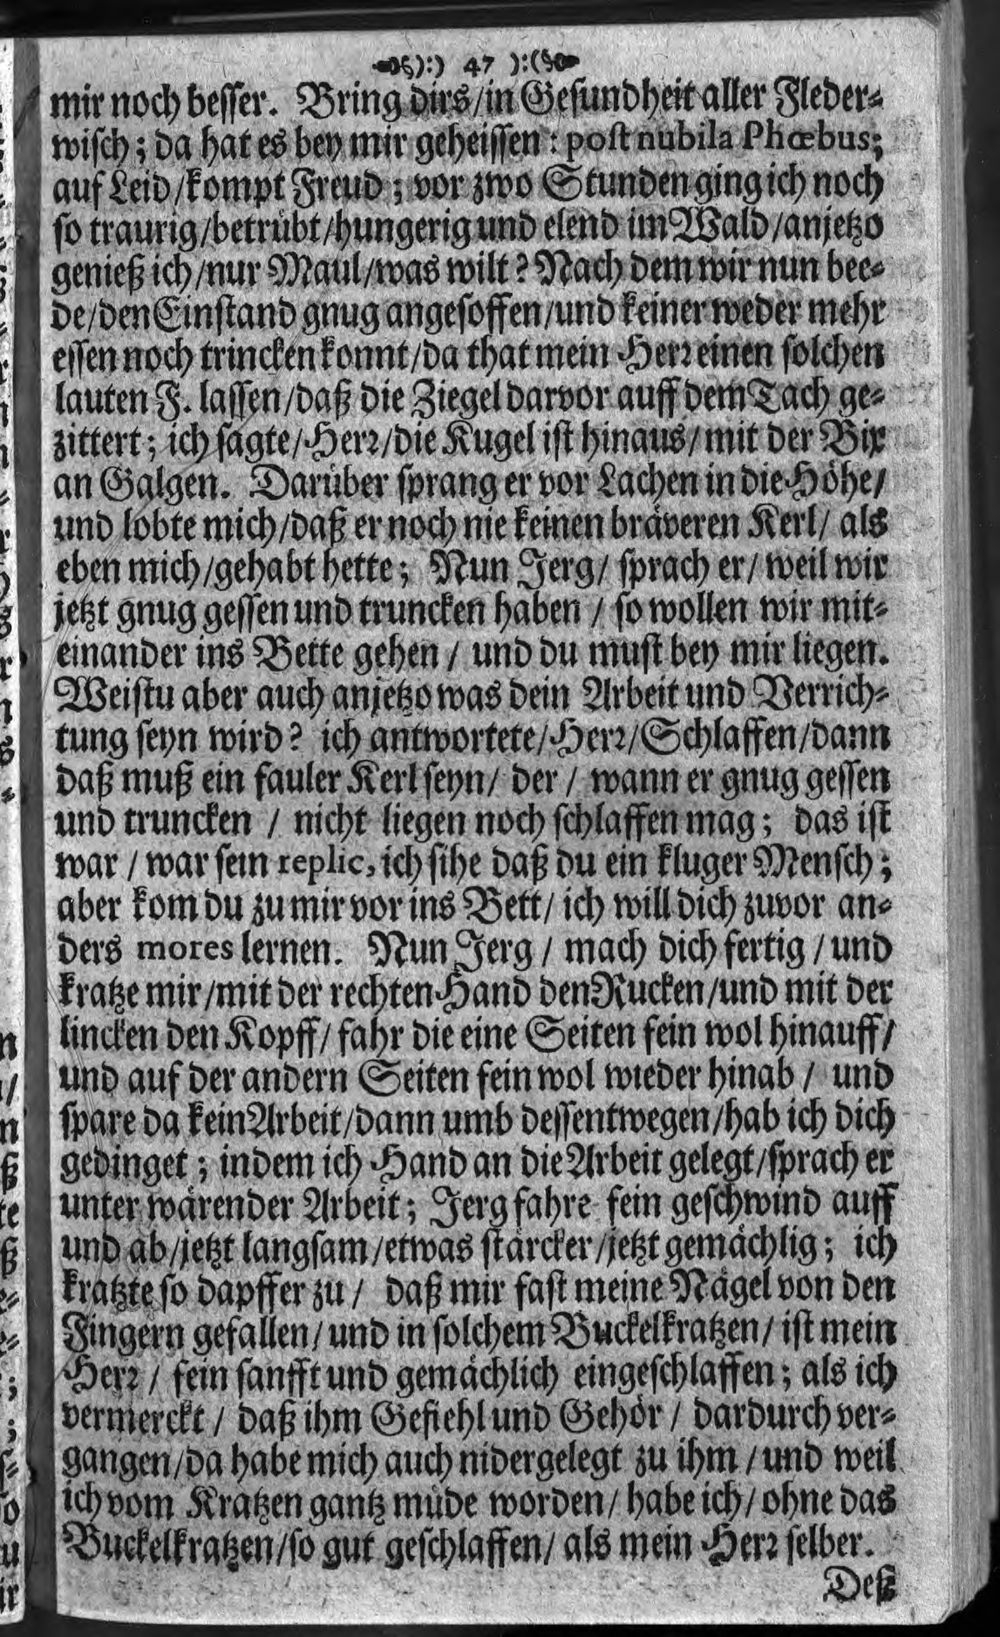 ):) 47 ):(
mir noch besser. Bring dirs/in Gesundheit aller Fleder-
wisch; da hat es bey mir geheissen: post nubila Phœbus;
auf Leid/kompt Freud; vor zwo Stunden ging ich noch
so traurig/betrübt/hungerig und elend im Wald/anjetzo
genieß ich/nur Maul/was wilt? Nach dem wir nun bee-
de/den Einstand gnug angesoffen/und keiner weder mehr
essen noch trincken konnt/da that mein Herr einen solchen
lauten F. lassen/daß die Ziegel darvor auff dem Tach ge-
zittert; ich sagte/Herr/die Kugel ist hinaus/mit der Bix
an Galgen. Darüber sprang er vor Lachen in die Höhe/
und lobte mich/daß er noch nie keinen bräveren Kerl/ als
eben mich/gehabt hette; Nun Jerg/ sprach er/ weil wir
jetzt gnug gessen und truncken haben / so wollen wir mit-
einander ins Bette gehen / und du must bey mir liegen.
Weistu aber auch anjetzo was dein Arbeit und Verrich-
tung seyn wird? ich antwortete/Herr/Schlaffen/dann
daß muß ein fauler Kerl seyn/ der / wann er gnug gessen
und truncken / nicht liegen noch schlaffen mag; das ist
war / war sein replic, ich sihe daß du ein kluger Mensch;
aber kom du zu mir vor ins Bett/ ich will dich zuvor an-
ders mores lernen. Nun Jerg / mach dich fertig / und
kratze mir/mit der rechten Hand den Rucken/und mit der
lincken den Kopff/ fahr die eine Seiten fein wol hinauff/
und auf der andern Seiten fein wol wieder hinab / und
spare da kein Arbeit/dann umb dessentwegen/hab ich dich
gedinget; indem ich Hand an die Arbeit gelegt/sprach er
unter wärender Arbeit; Jerg fahre fein geschwind auff
und ab/jetzt langsam/etwas stärcker/jetzt gemächlig; ich
kratzte so dapffer zu / daß mir fast meine Nägel von den
Fingern gefallen/ und in solchem Buckelkratzen/ ist mein
Herr / fein sanfft und gemächlich eingeschlaffen; als ich
vermerckt / daß ihm Gefiehl und Gehör / dardurch ver-
gangen/da habe mich auch nidergelegt zu ihm / und weil
ich vom Kratzen gantz müde worden/ habe ich/ ohne das
Buckelkratzen/so gut geschlaffen/ als mein Herr selber.
Deß